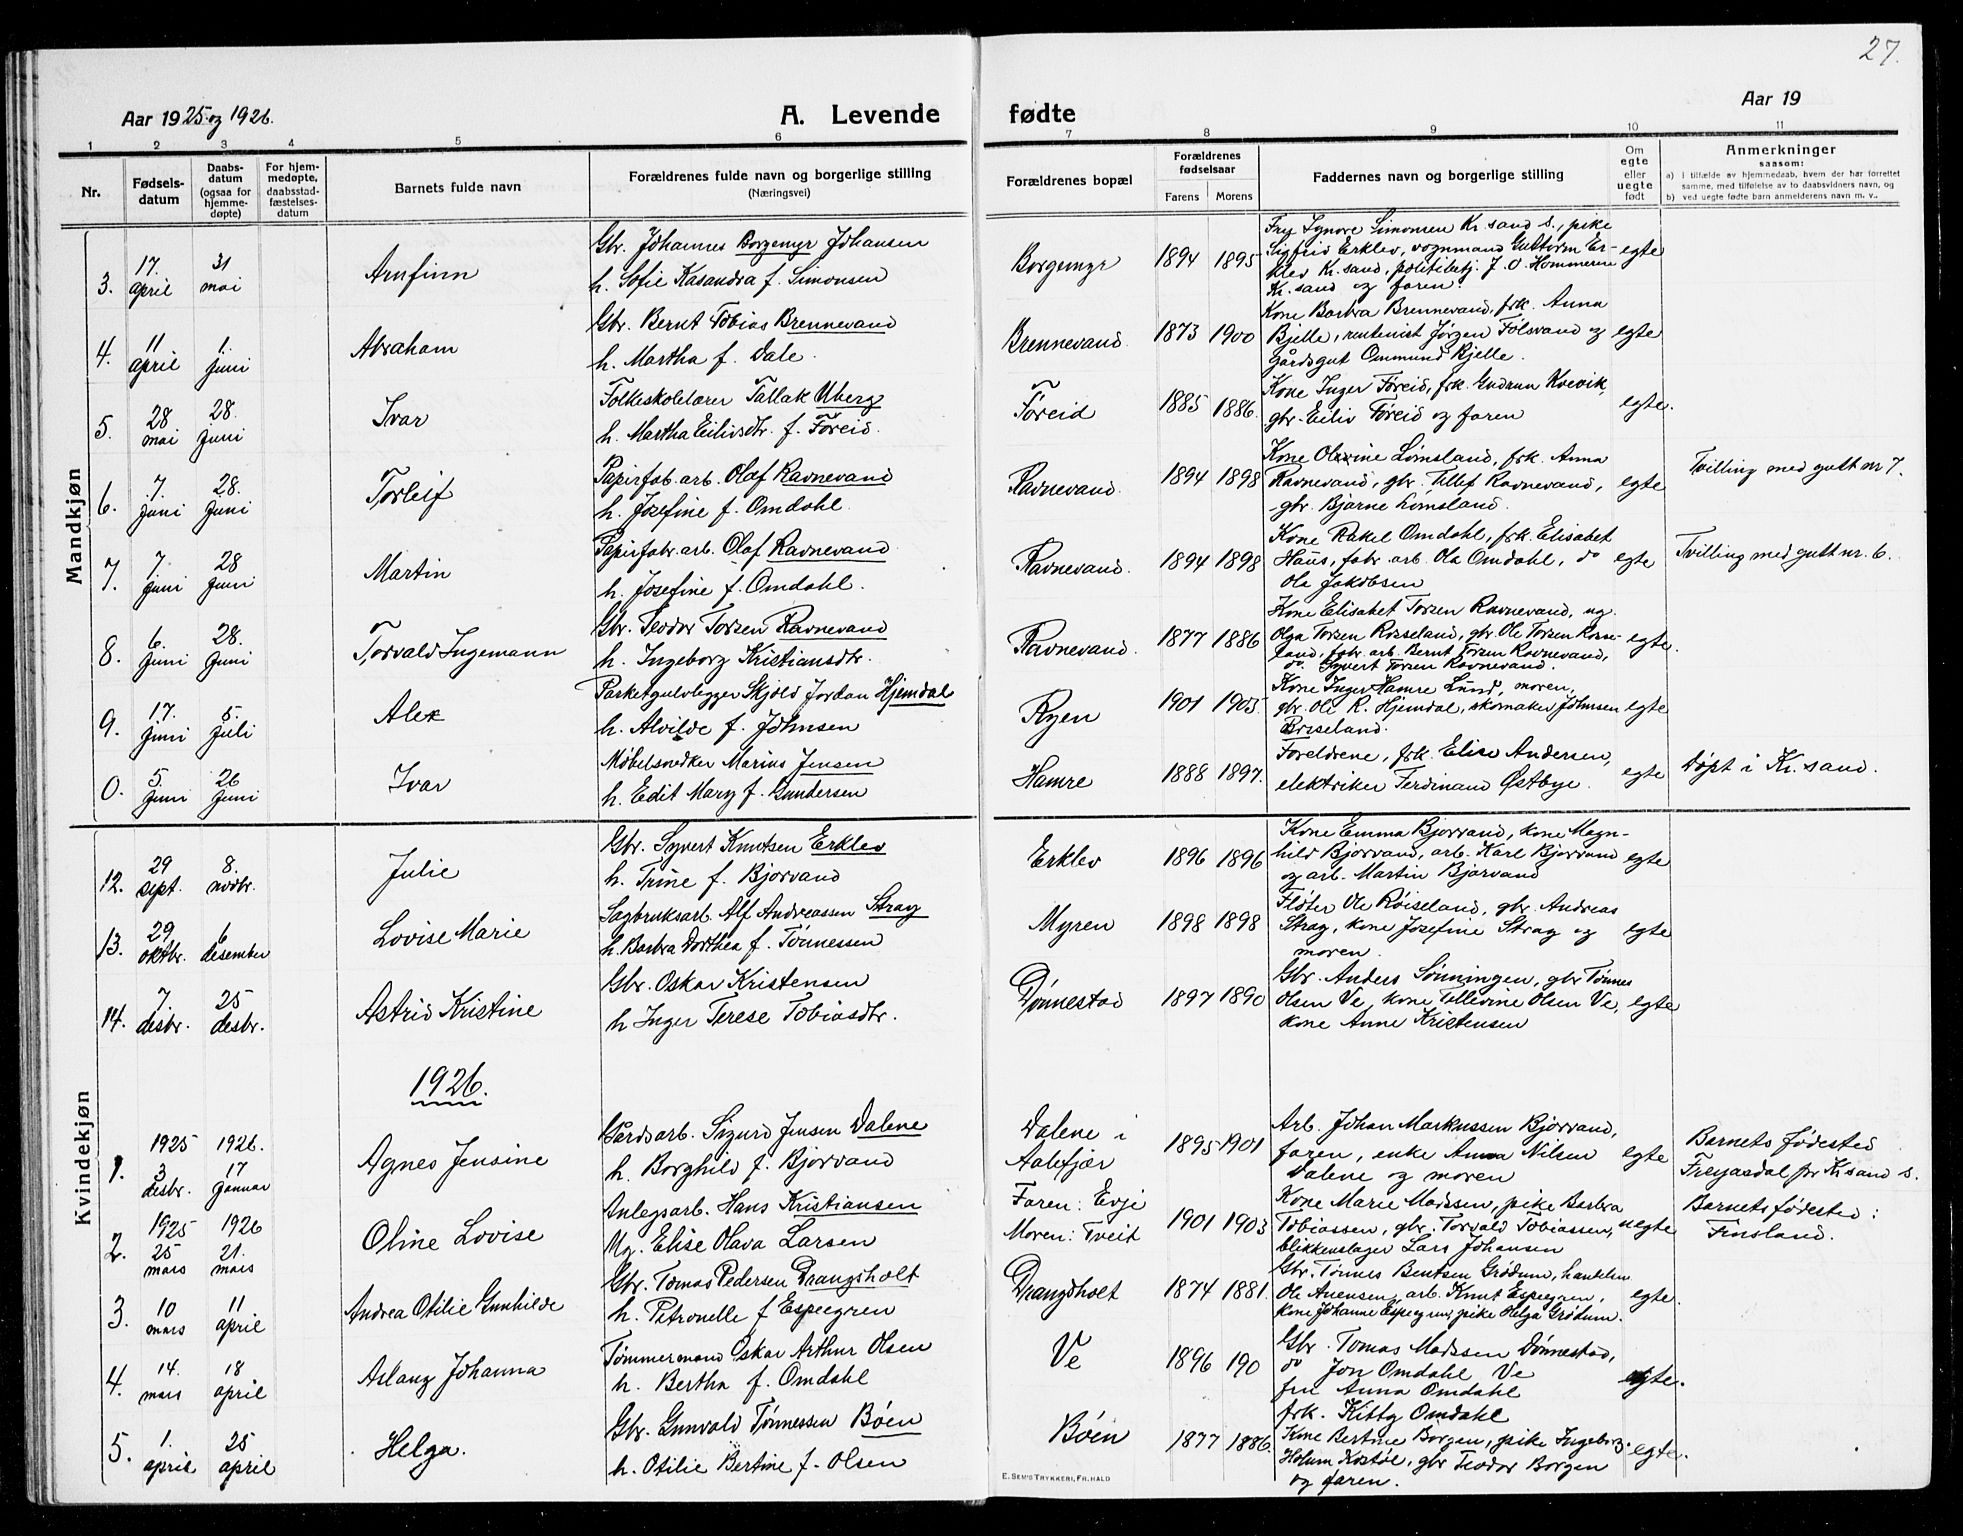 27.
Aar 1925 og 1926.
A. Levende fødte
Aar 19
1 2 3 4 5 6 7 8 9 10 11
Nr.
Fødsels-
datum
Daabs-
datum
(ogsaa for
hjemme-
døpte)
For hjem-
medøpte,
daabsstad-
fæstelses-
datum
Barnets fulde navn
Forældrenes fulde navn og borgerlige stilling
(Næringsvei)
Forældrenes bopæl
Forældrenes
fødselsaar
Farens Morens
Faddernes navn og borgerlig stilling
Om
egte
eller
uegte
født
Anmerkninger
saasom:
a) i tilfælde av hjemmedaab, hvem der har forrettet
samme, med tilføielse av to daabsvidners navn, og
b) ved uegte fødte barn anmelderens navn m. v..
Mandkjøn
3. 17. april 31 mai Arnfinn
Gbr. Johannes Borgemyr Johansen
h. Sofie Kasandra f. Simonsen
Borgemyr 1894 1895
Fru Synøve Simonsen Kr.sand S., pike
Sigfrid Erklev, vognmand Guttorm Er-
klev Kr.sand, politibetj. J. O. Hommeren
Kr.sand og faren.
egte
4. 11 april 1. juni Abraham
Gbr. Bernt Tobias Brennevand
h. Martha f. Dale.
Brennevand. 1873 1900
Kone Barbra Brennevand, frk. Anna
Bjelle, rentenist Jørgen Følsvand og
gårdsgut Ommund Kjelle.
egte
5. 28 mai 28. juni Ivar
Folkeskolelærer Tallak Uberg
h. Martha Eilivsdtr. f. Føreid.
Føreid 1885 1886.
Kone Inger Føreid, frk. Gudrun Kvevik,
gbr. Eiliv Føreid og faren
egte.
6. 7. juni 28. juni Torleif
Papirfab.arb. Olaf Ravnevand
h. Josefine f. Omdahl.
Ravnevand. 1894 1898
Kone Olevine Lømsland, frk. Anna
Ravnevand, gbr. Tellef Ravnevand,
gbr. Bjarne Lømsland.
egte
Tvilling med gutt nr 7.
7. 7. juni 28 juni Martin
Papirfabr.arb. Olaf Ravnevand
h. Josefine f. Omdahl.
Ravnevand. 1894 1898
Kone Rakel Omdahl, frk. Elisabet
Haus, fabr. arb. Ola Omdahl, do
Ola Jakobsen
egte
Tvilling med gutt nr. 6.
8. 6. juni 28. juni Torvald Ingemann
Gbr. Teodor Torsen Ravnevand
h. Ingeborg Kristiansdtr.
Ravnevand. 1877 1886
Kone Elisabet Torsen Ravnevand, ug.
Olga Torsen Rosseland, gbr. Ole Torsen Rosse-
land, fabr. arb. Bernt Torsen Ravnevand,
do. Syvert Torsen Ravnevand.
egte.
9. 17. juni 5. juli Alex
Parketgulvlegger Skjold Jordan Hjemdal
h. Alvilde f. Johnsen
Ryen 1901 1905.
Kone Inger Hamre Lund, moren,
gbr. Ole R. Hjemdal, skomaker Johnsen
Briseland.
egte
0. 5. juni 26 juni Ivar
Møbelsnedker Marius Jensen
h. Edit Mary f. Gundersen
Hamre 1888 1897.
Foreldrene, frk. Elise Andersen,
elektriker Ferdinand Østbye.
egte
Døpt i Kr.sand.
Kvindekjøn
12. 29 sept. 8. novbr. Julie
Gbr. Syvert Knutsen Erklev
h. Trine f. Bjorvand
Erklev 1896 1896
Kone Emma Bjorvand, kone Magn-
hild Bjorvand, arb. Karl Bjorvand
og arb. Martin Bjorvand
egte
13. 29 oktbr. 6 desember Lovise Marie
Sagbruksarb. Alf Andreassen Stray
h. Barbra Dorthea f. Tønnessen
Myren 1898 1898
Fløter Ole Røiseland, gbr. Andreas
Stray, kone Josefine Stray og
moren.
egte
14. 7. desbr. 25 desbr. Astrid Kristine
Gbr. Oskar Kristensen
h Inger Terese Tobiasdtr.
Dønnestad 1897 1890
Gbr. Anders Sønningen, gbr Tønnes
Olsen Ve, kone Tellevine Olsen Ve,
kone Anne Kristensen
egte
1926.
1. 1925 3 desbr. 1926. 17 januar Agnes Jensine
Gårdsarb. Sigurd Jensen Dalene
h. Borghild f. Bjorvand
Dalene i
Aalefjær
1895 1901
Arb. Johan Markussen Bjorvand,
faren, enke Anna Nilsen
Dalene og moren
egte
Barnets fødested
Freyasdal pr Kr.sand S.
2. 1925 25 mars 1926 21. mars Oline Lovise
Anlegsarb. Hans Kristiansen
Ug. Elise Olava Larsen
Faren: Evje
Moren: Tveit
1901 1903
Kone Marie Madssen, pike Barbra
Tobiassen, gbr. Torvald Tobiassen,
blikkenslager Lars Johansen
uegte
Barnets fødested:
Finsland.
3. 10 mars 11 april Andrea Otilie Gunhilde
Gbr. Tomas Pedersen Drangsholt
h. Petronelle f Espegren
Drangsholt 1874 1881.
Gbr. Tønnes Bentsen Grødum, handelsm
Ole Auensen, arb. Knut Espegren,
kone Johanne Espegren, pike Helga Grødum.
egte.
4. 14. mars 18 april Aslaug Johanna
Tømmermand Oskar Arthur Olsen
h. Bertha f. Omdahl
Ve 1896 190
Gbr. Tomas Madssen Dønnestad,
do Jon Omdahl Ve
fru Anna Omdahl
frk. Kitty Omdahl
egte.
5. 1. april 25 april Helga.
Gbr. Gunvald Tønnessen Bøen
h. Otilie Bertine f. Olsen
Bøen 1877 1886.
Kone Bertine Borgen, pike Ingeborg
Holum Kostøl, gbr Teodor Borgen
og faren.
egte.
E. SEM'S TRYKKERI, FR.HALD